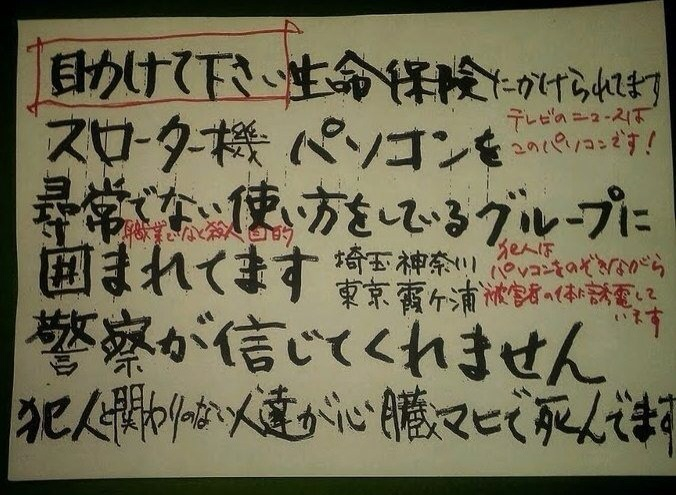 助けて下さい 生命保険にかけられてます
テレビのニュースは
このパソコンです!
スローター機 パソコンを
尋常でない使い方をしているグループに
職業でなく殺人目的
囲まれてます 埼玉 神奈川
東京 霞ヶ浦
犯人は
パソコンをのぞきながら
被害者の体に誘電して
います
警察が信じてくれません
犯人と関わりのない人達が心臓マヒで死んでます